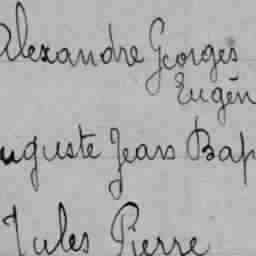 Alexandre Georges
Eugèn
uguste Jean Bap
Jules Pierre